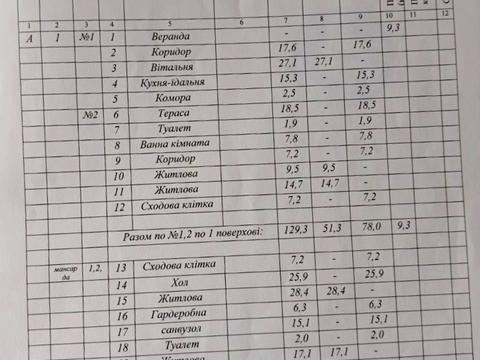 1 2 3 4 5 6 7 8 9 10 11 12
А 1 №1 1 Веранда - - - 9,3
2 Коридор 17,6 - 17,6
3 Вітальня 27,1 27,1 -
4 Кухня-їдальня 15,3 - 15,3
5 Комора 2,5 - 2,5
№2 6 Тераса 18,5 - 18,5
7 Туалет 1,9 - 1,9
8 Ванна кімната 7,8 - 7,8
9 Коридор 7,2 - 7,2
10 Житлова 9,5 9,5 -
11 Житлова 14,7 14,7 -
12 Сходова клітка 7,2 - 7,2
Разом по №1,2 по 1 поверхові: 129,3 51,3 78,0 9,3
мансар
да 1,2, 13 Сходова клітка 7,2 - 7,2
14 Хол 25,9 - 25,9
15 Житлова 28,4 28,4 -
16 Гардеробна 6,3 - 6,3
17 санвузол 15,1 - 15,1
18 Туалет 2,0 - 2,0
Житлова 17,1 17,1 -